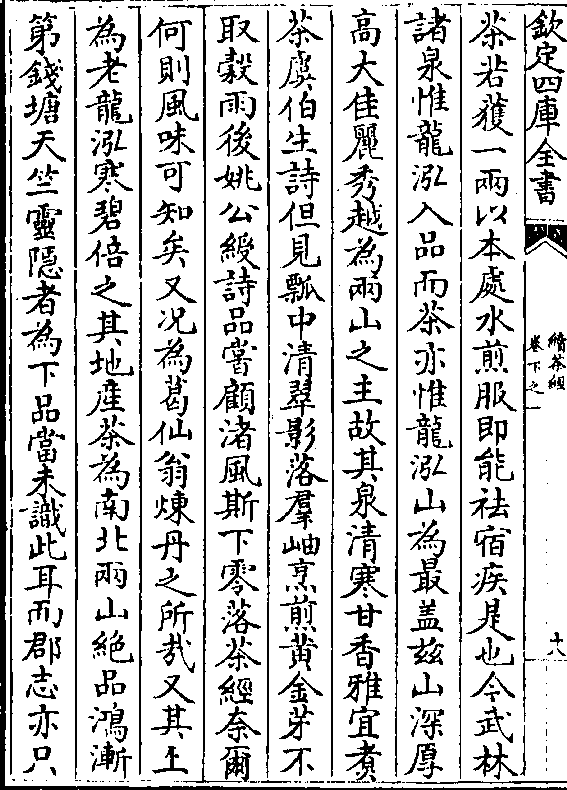 欽定四庫全書
續茶經
卷下之一
十八
茶若獲一兩以本處水煎服即能祛宿疾是也今武林
諸泉惟龍泓入品而茶亦惟龍泓山為最盖兹山深厚
高大佳麗秀越為兩山之主故其泉清寒甘香雅宜煮
茶虞伯生詩但見瓢中清翠影落羣岫烹煎黄金芽不
取穀雨後姚公綬詩品嘗顧渚風斯下零落茶經奈爾
何則風味可知矣又况為葛仙翁煉丹之所哉又其上
為老龍泓寒碧倍之其地産茶為南北兩山絶品鴻漸
第錢塘天竺靈隱者為下品當未識此耳而郡志亦只